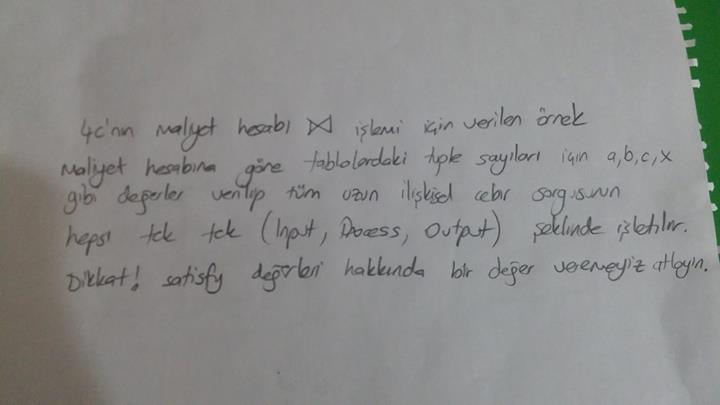 4c'nin maliyet hesabı ⋈ işlemi için verilen örnek
maliyet hesabına göre tablolardaki tuple sayıları için a,b,c,x
gibi değerler verilip tüm uzun ilişkisel cebir sorgusunun
hepsi tek tek (Input, Process, Output) şeklinde işletilir.
Dikkat! satisfy değerleri hakkında bir değer veremeyiz atlayın.